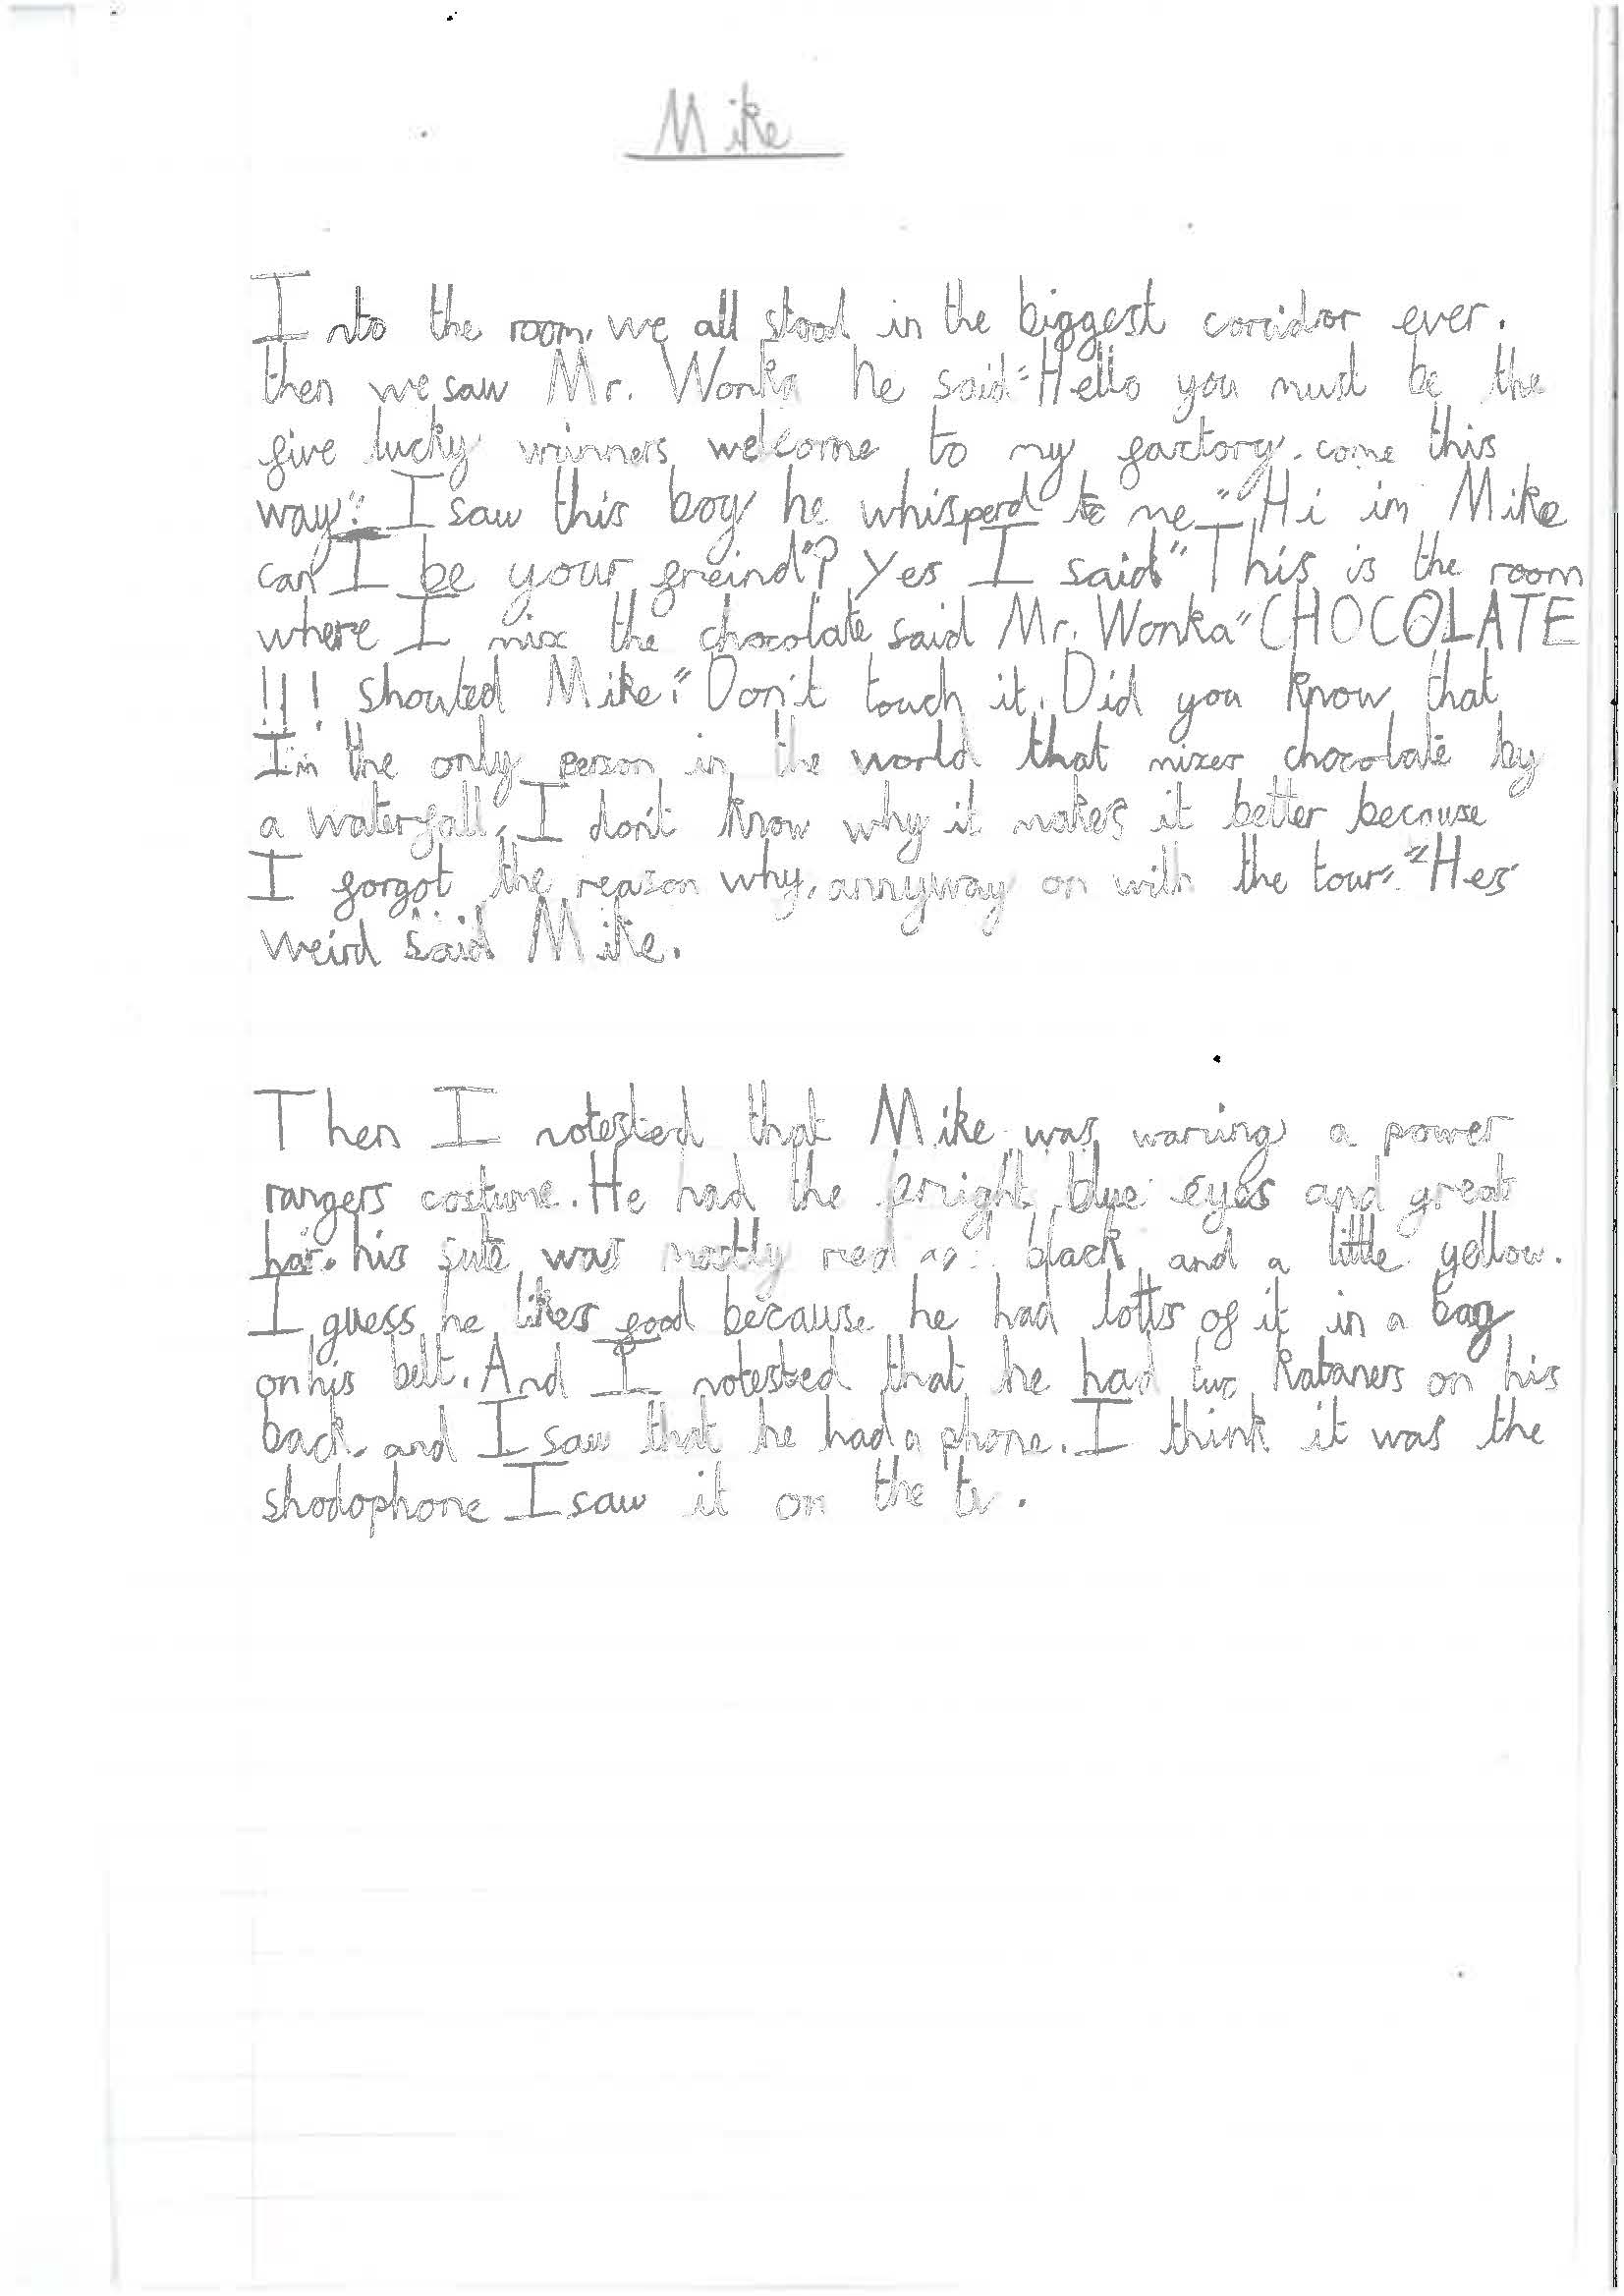 Mike
Into the room, we all stood in the biggest corridor ever.
then we saw Mr. Wonka he said "Hello you must be the
five lucky winners welcome to my factory. come this
way". I saw this boy he whisperd to me "Hi im Mike
can I be your freind"? Yes I said "This is the room
where I mix the chocolate said Mr. Wonka "CHOCOLATE
!!! shouted Mike." Don't touch it. Did you know that
I'm the only person in the world that mixes chocolate by
a waterfall, I don't know why it makes it better because
I forgot the reason why, annyway on with the tour". "Hes
weird said Mike.
Then I notested that Mike was waring a power
rangers costume. He had the bright blue eyes and great
hair. his sute was mostly red black and a little yellow.
I guess he likes food because he had lotts of it in a bag
on his belt. And I notested that he had two kataners on his
back and I saw that he had a phone. I think it was the
shodophone I saw it on the tv.